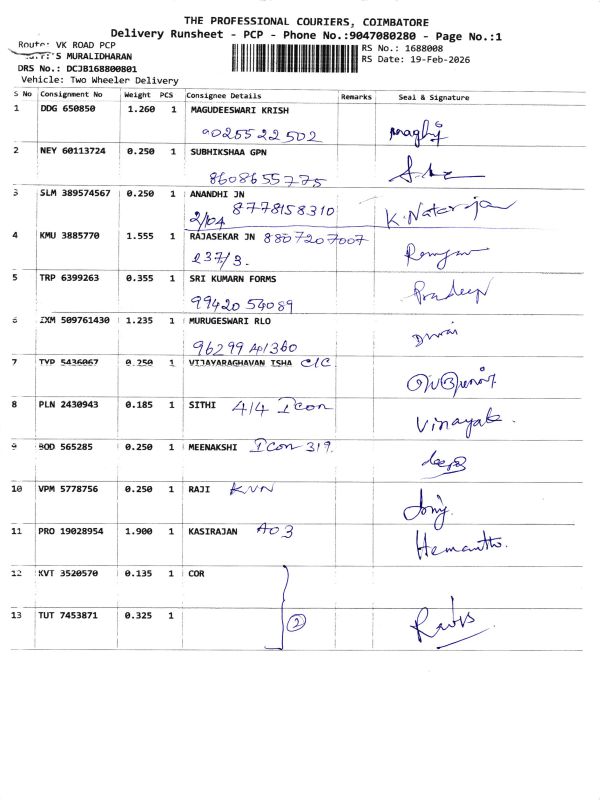 THE PROFESSIONAL COURIERS, COIMBATORE
Delivery Runsheet - PCP - Phone No.:9047080280 - Page No.:1
Route: VK ROAD PCP
S MURALIDHARAN
DRS No.: DCJB168800801
Vehicle: Two Wheeler Delivery
RS No.: 1688008
RS Date: 19-Feb-2026
S No Consignment No Weight PCS Consignee Details Remarks Seal & Signature
1 DDG 650850 1.260 1 MAGUDEESWARI KRISH
9025522502
2 NEY 60113724 0.250 1 SUBHIKSHAA GPN
8608655775
3 SLM 389574567 0.250 1 ANANDHI JN
2/04 8778158310 K. Natarajan
4 KMU 3885770 1.555 1 RAJASEKAR JN 8807207007
237/3.
5 TRP 6399263 0.355 1 SRI KUMARN FORMS Pradeep
99420 54089
6 ZXM 509761430 1.235 1 MURUGESWARI RLO
96299 41360
7 TYP 5436067 0.250 1 VIJAYARAGHAVAN ISHA CIC
8 PLN 2430943 0.185 1 SITHI 414 Icon Vinayak.
9 BOD 565285 0.250 1 MEENAKSHI Icon 319.
10 VPM 5778756 0.250 1 RAJI KVN
11 PRO 19028954 1.900 1 KASIRAJAN A03 Hemantho.
12 KVT 3520570 0.135 1 COR
13 TUT 7453871 0.325 1 2